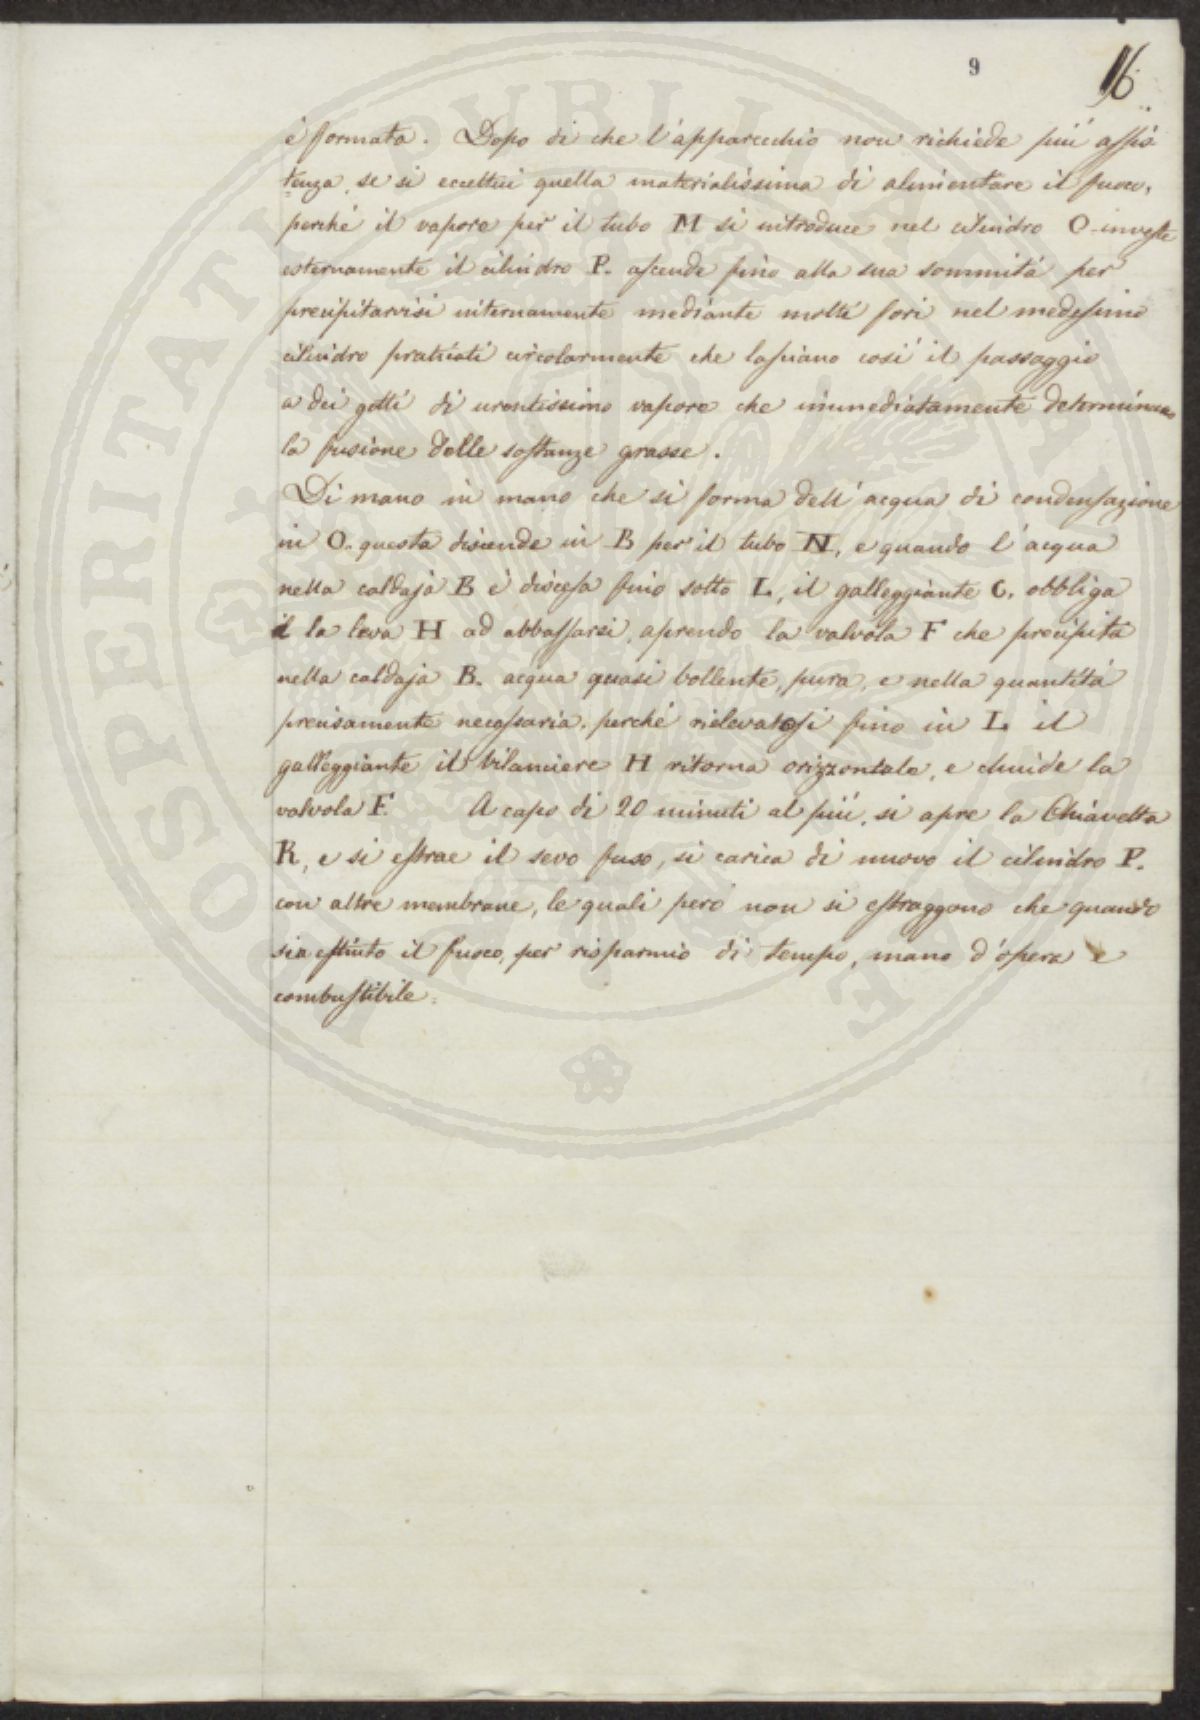 9
16
è formata. Dopo di che l'apparecchio non richiede piú assis-
tenza, se si eccettui quella materialissima di alimentare il fuoco,
perché il vapore per il tubo M si introduce nel cilindro O investe
esternamente il cilindro P. ascende fino alla sua sommitá per
precipitarvisi internamente mediante molti fori nel medesimo
cilindro praticati circolarmente che lasciano cosi il passaggio
a dei getti di urentissimo vapore che immediatamente determinano
la fusione delle sostanze grasse.
Di mano in mano che si forma dell'acqua di condensazione
in O. questa discende in B per il tubo N, e quando l'acqua
nella caldaja B é discesa fino sotto L, il galleggiante C. obbliga
la leva H ad abbassarsi, aprendo la valvola F che precipita
nella caldaja B. acqua quasi bollente, pura, e nella quantitá
precisamente necessaria, perché rielevatosi fino in L il
galleggiante il bilanciere H ritorna orizzontale, e chiude la
valvola F. A capo di 20 minuti al piú, si apre la Chiavetta
R, e si estrae il sevo fuso, si carica di nuovo il cilindro P.
con altre membrane, le quali peró non si estraggono che quando
sia estinto il fuoco, per risparmio di tempo, mano d'opera e
combustibile.
PROSPERITATI PUBLICAE AUGENDAE